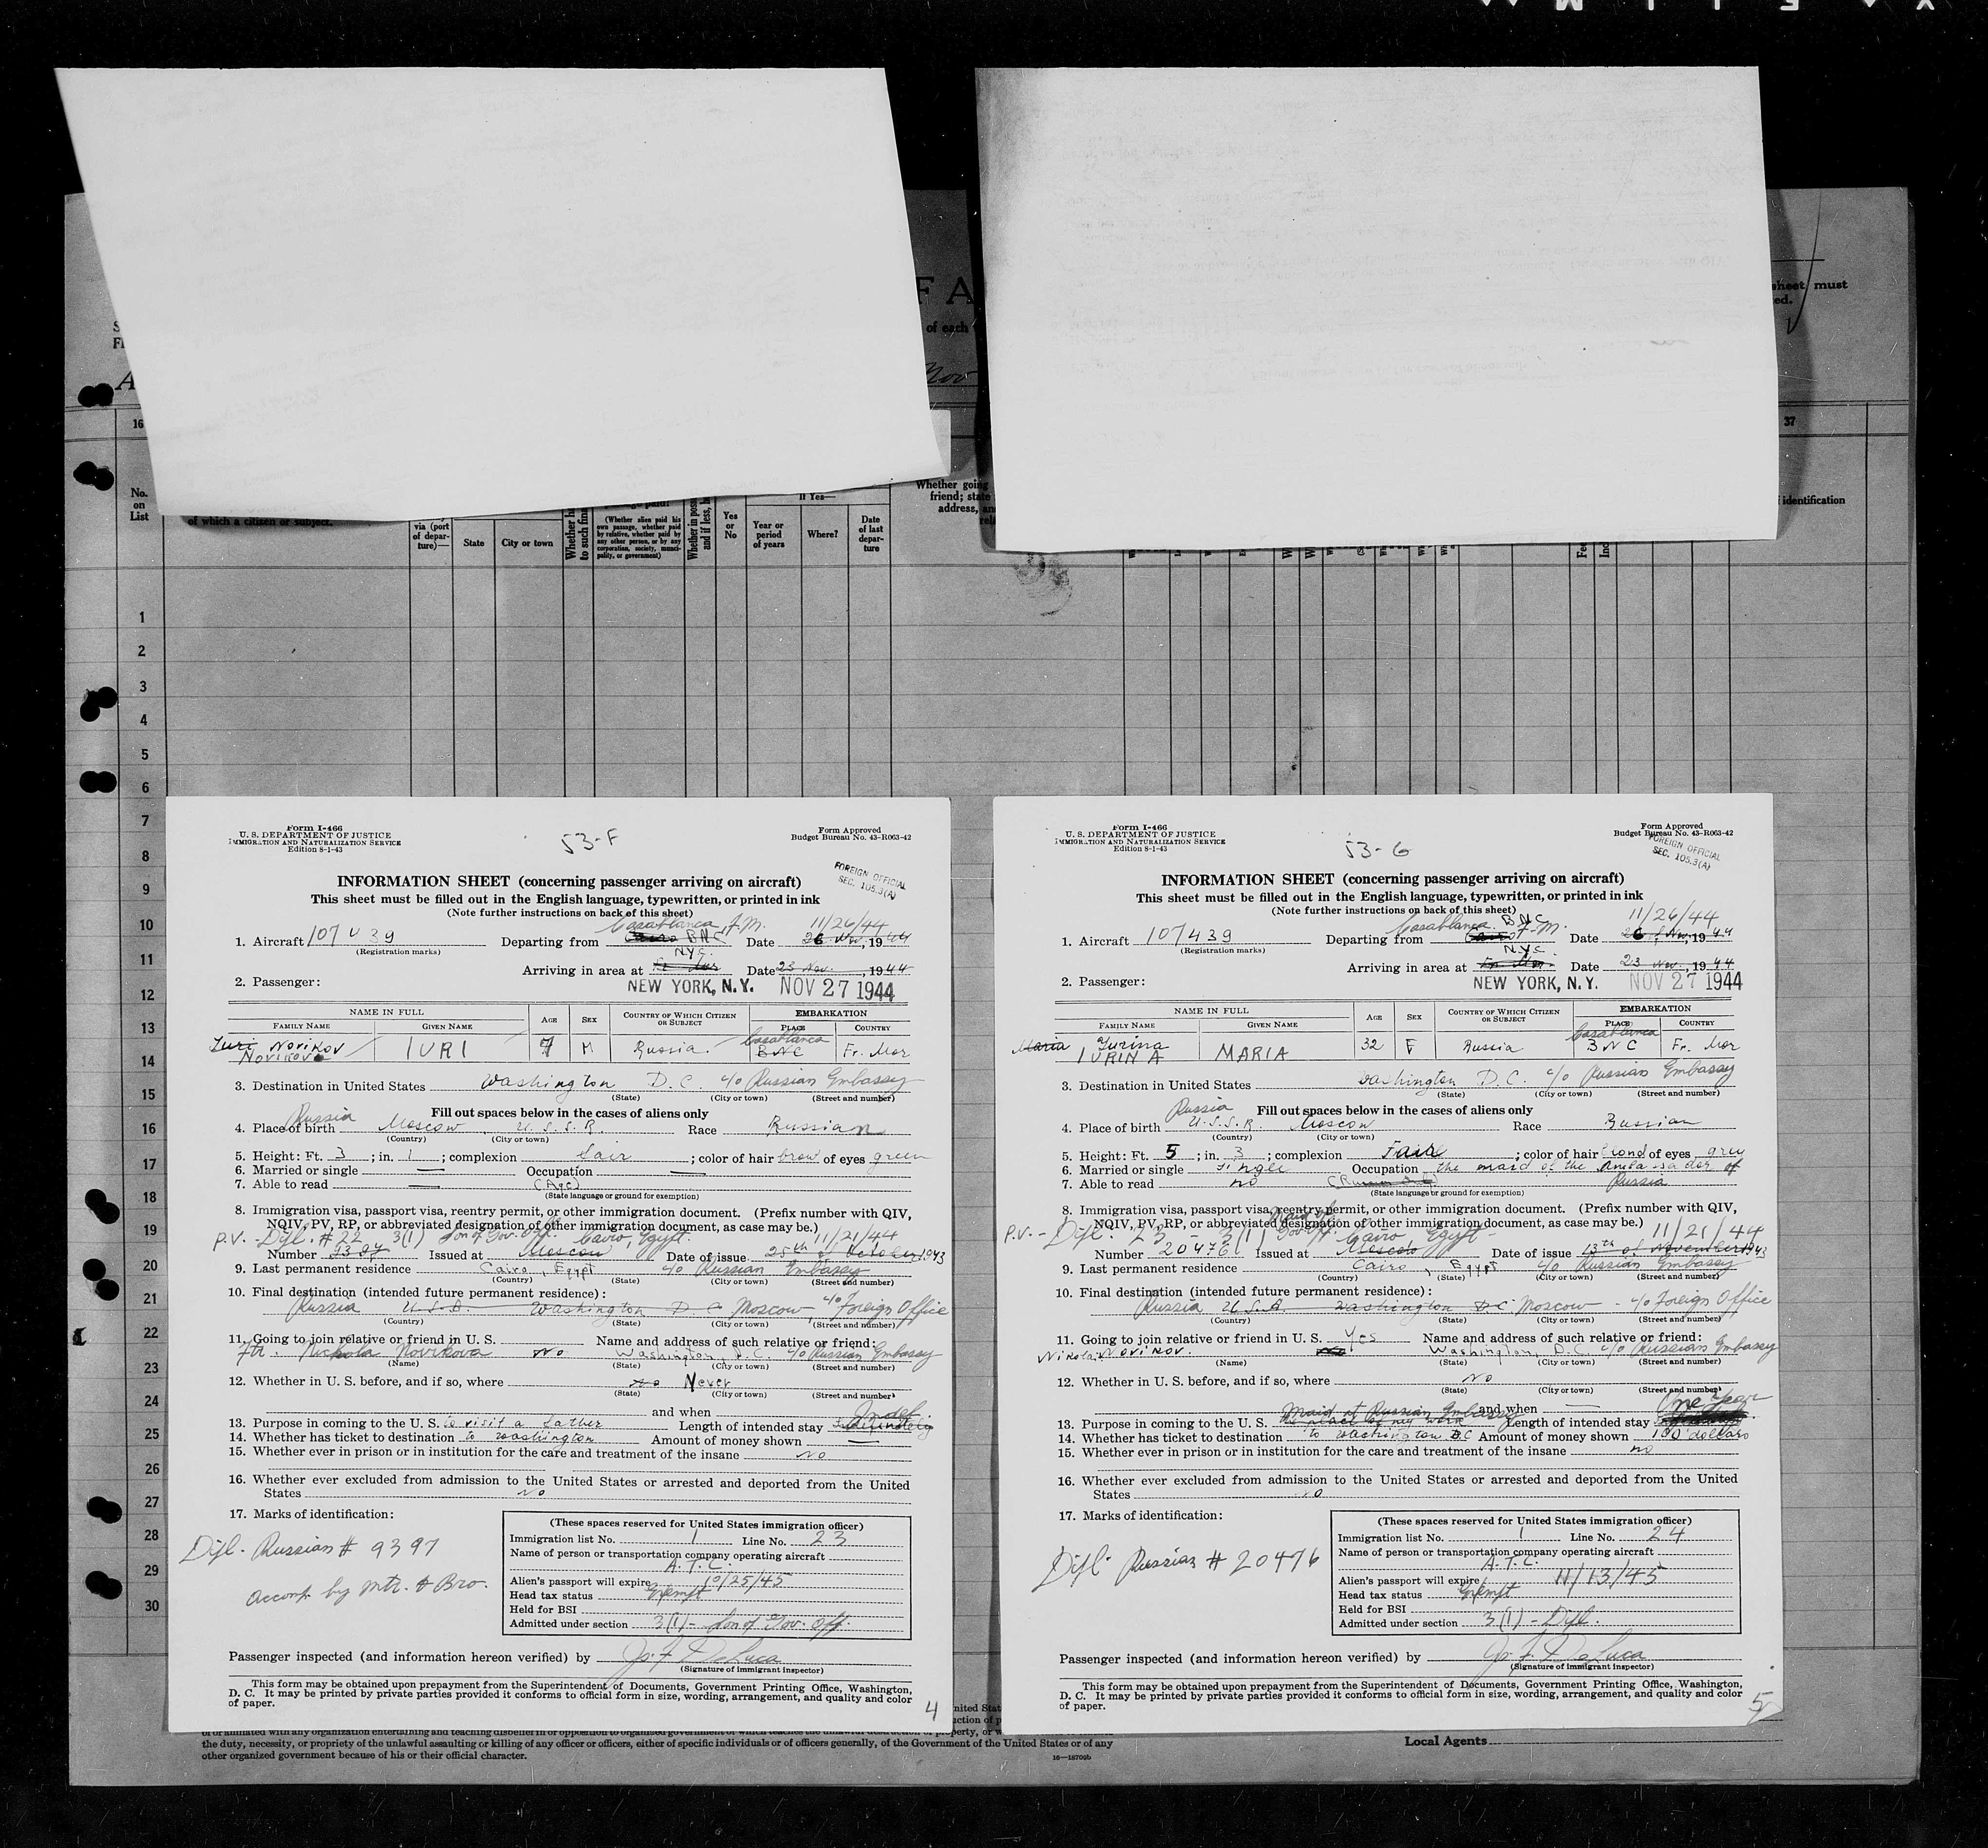 F A
sheet must
ed.
of each
Nov
16
37
No.
on
List
of which a citizen or subject.
via (port
of depar-
ture)—
State
City or town
(Whether alien paid his
own passage, whether paid
by relative, whether paid by
any other person, or by any
corporation, society, munici-
pality, or government)
Yes
or
No
If Yes—
Year or
period
of years
Where?
Date
of last
depar-
ture
Whether going
friend; state
address, an
identification
1
2
3
4
5
6
7
8
9
10
11
12
13
14
15
16
17
18
19
20
21
22
23
24
25
26
27
28
29
30
Form I-466
U. S. DEPARTMENT OF JUSTICE
IMMIGRATION AND NATURALIZATION SERVICE
Edition 8-1-43
53-F
Form Approved
Budget Bureau No. 43-R063-42
FOREIGN OFFICIAL
SEC. 105.3(A)
INFORMATION SHEET (concerning passenger arriving on aircraft)
This sheet must be filled out in the English language, typewritten, or printed in ink
(Note further instructions on back of this sheet)
Casablanca, F.M. 11/26/44
1. Aircraft 107439 Departing from Cairo BNC Date 26 Nov., 1944
(Registration marks)
NYC.
Arriving in area at Date 23 Nov., 1944
2. Passenger: NEW YORK, N.Y. NOV 27 1944
NAME IN FULL
FAMILY NAME GIVEN NAME AGE SEX COUNTRY OF WHICH CITIZEN OR SUBJECT EMBARKATION PLACE COUNTRY
Casablanca
Iuri Novikov
Novikova IURI 7 M Russia BNC Fr. Mor
3. Destination in United States Washington D.C. c/o Russian Embassy
(State) (City or town) (Street and number)
Fill out spaces below in the cases of aliens only
Russia
4. Place of birth Moscow U.S.S.R. Race Russian
(Country) (City or town)
5. Height: Ft. 3; in. 1; complexion fair; color of hair brow of eyes green
6. Married or single — Occupation —
7. Able to read — (Age)
(State language or ground for exemption)
8. Immigration visa, passport visa, reentry permit, or other immigration document. (Prefix number with QIV,
NQIV, PV, RP, or abbreviated designation of other immigration document, as case may be.)
P.V. - Dipl. # 22 3(1) Son of Gov. Off. Cairo, Egypt. 11/21/44
Number 9397 Issued at Moscow Date of issue 25th of October 1943
9. Last permanent residence Cairo, Egypt c/o Russian Embassy
(Country) (State) (City or town) (Street and number)
10. Final destination (intended future permanent residence):
Russia U.S.A. Washington D C Moscow, c/o Foreign Office
(Country) (State) (City or town) (Street and number)
11. Going to join relative or friend in U. S. Name and address of such relative or friend:
Ftr. Nichola Novikova No Washington, D.C. c/o Russian Embassy
(Name) (State) (City or town) (Street and number)
12. Whether in U. S. before, and if so, where No Never
(State) (City or town) (Street and number)
and when
Indef.
13. Purpose in coming to the U. S. to visit a father Length of intended stay Indefinitely
14. Whether has ticket to destination to Washington Amount of money shown —
15. Whether ever in prison or in institution for the care and treatment of the insane No
16. Whether ever excluded from admission to the United States or arrested and deported from the United
States No
17. Marks of identification:
Dipl. Russian # 9397
accomp. by mtr. & Bro.
(These spaces reserved for United States immigration officer)
Immigration list No. 1 Line No. 23
Name of person or transportation company operating aircraft
A.T.C.
Alien's passport will expire 10/25/45
Head tax status Exempt
Held for BSI
Admitted under section 3(1) - Son of Gov. Off.
Passenger inspected (and information hereon verified) by Jos. F. DeLuca
(Signature of immigrant inspector)
This form may be obtained upon prepayment from the Superintendent of Documents, Government Printing Office, Washington,
D. C. It may be printed by private parties provided it conforms to official form in size, wording, arrangement, and quality and color
of paper.
4
Form I-466
U. S. DEPARTMENT OF JUSTICE
IMMIGRATION AND NATURALIZATION SERVICE
Edition 8-1-43
53-G
Form Approved
Budget Bureau No. 43-R063-42
FOREIGN OFFICIAL
SEC. 105.3(A)
INFORMATION SHEET (concerning passenger arriving on aircraft)
This sheet must be filled out in the English language, typewritten, or printed in ink
(Note further instructions on back of this sheet)
Casablanca BNC 11/26/44
1. Aircraft 107439 Departing from Cairo F.M. Date 26 Nov., 1944
(Registration marks)
NYC
Arriving in area at Date 23 Nov., 1944
2. Passenger: NEW YORK, N.Y. NOV 27 1944
NAME IN FULL
FAMILY NAME GIVEN NAME AGE SEX COUNTRY OF WHICH CITIZEN OR SUBJECT EMBARKATION PLACE COUNTRY
Casablanca
Maria Yurina
IURINA MARIA 32 F Russia BNC Fr. Mor
3. Destination in United States Washington D.C. c/o Russian Embassy
(State) (City or town) (Street and number)
Fill out spaces below in the cases of aliens only
Russia
4. Place of birth U.S.S.R. Moscow Race Russian
(Country) (City or town)
5. Height: Ft. 5; in. 3; complexion Fair; color of hair blond of eyes grey
6. Married or single Single Occupation the maid of the Ambassador of
7. Able to read no Russia
(State language or ground for exemption)
8. Immigration visa, passport visa, reentry permit, or other immigration document. (Prefix number with QIV,
NQIV, PV, RP, or abbreviated designation of other immigration document, as case may be.)
P.V. - Dipl. 23 - 3(1) Maid of Gov. Off. Cairo Egypt - 11/21/44
Number 20476 Issued at Moscow Date of issue 13th of November 1943
9. Last permanent residence Cairo, Egypt c/o Russian Embassy
(Country) (State) (City or town) (Street and number)
10. Final destination (intended future permanent residence):
Russia U.S.A. Washington DC Moscow - c/o Foreign Office
(Country) (State) (City or town) (Street and number)
11. Going to join relative or friend in U. S. Yes Name and address of such relative or friend:
Nikolai Novikov. No Washington, D.C. c/o Russian Embassy
(Name) (State) (City or town) (Street and number)
12. Whether in U. S. before, and if so, where No
(State) (City or town) (Street and number)
and when —
Maid at Russian Embassy One Year
13. Purpose in coming to the U. S. the place of my work Length of intended stay
14. Whether has ticket to destination to Washington DC Amount of money shown 100 dollars
15. Whether ever in prison or in institution for the care and treatment of the insane no
16. Whether ever excluded from admission to the United States or arrested and deported from the United
States no
17. Marks of identification:
Dipl. Russian # 20476
(These spaces reserved for United States immigration officer)
Immigration list No. 1 Line No. 24
Name of person or transportation company operating aircraft
A.T.C.
Alien's passport will expire 11/13/45
Head tax status Exempt
Held for BSI
Admitted under section 3(1) - Dipl.
Passenger inspected (and information hereon verified) by Jos. F. DeLuca
(Signature of immigrant inspector)
This form may be obtained upon prepayment from the Superintendent of Documents, Government Printing Office, Washington,
D. C. It may be printed by private parties provided it conforms to official form in size, wording, arrangement, and quality and color
of paper.
5
the duty, necessity, or propriety of the unlawful assaulting or killing of any officer or officers, either of specific individuals or of officers generally, of the Government of the United States or of any
other organized government because of his or their official character.
16—18709b
Local Agents